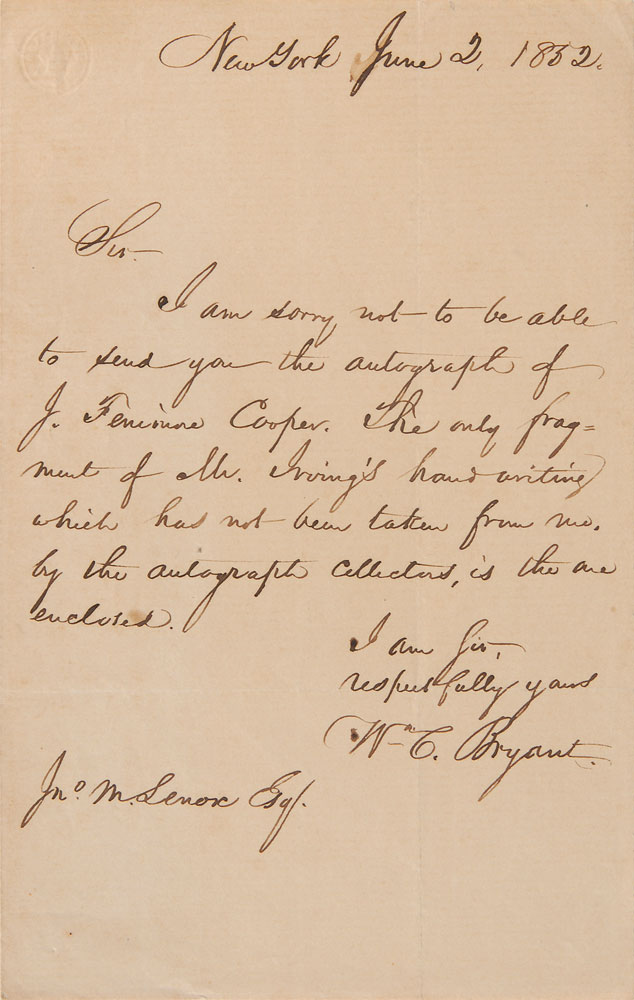 New York June 2, 1852.
Sir
I am sorry not to be able
to send you the autograph of
J. Fenimore Cooper. The only frag=
ment of Mr. Irving's handwriting
which has not been taken from me,
by the autograph collectors, is the one
enclosed.
I am Sir,
respectfully yours
Wm C. Bryant.
Jno. M. Lenox Esq.